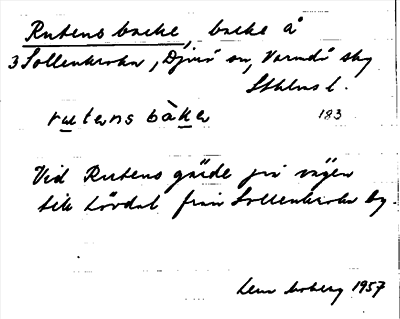 Rutens backe, backe å
3 Sollenkroka, Djurö sn, Värmdö sky
Sthlms l.
rutens bàkɐ 183
Vid Rutens gärde på vägen
till Lövdal från Sollenkroka by.
Lena Moberg 1957